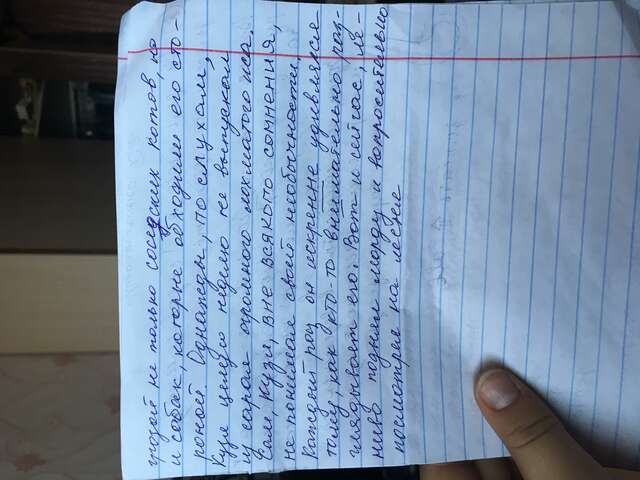 грозой не только соседских котов, но
и собак, которые обходили его сто-
роной. Однажды, по слухам,
Кузя целую неделю не выпускал
из сарая огромного лохматого пса.
Сам, Кузя, вне всякого сомнения,
не понимал своей необычности.
Каждый раз он искренне удивлялся
тому, как кто-то внимательно раз-
глядывает его. Вот и сейчас, ле-
ниво поднял морду и вопросительно
посмотрел на лесные